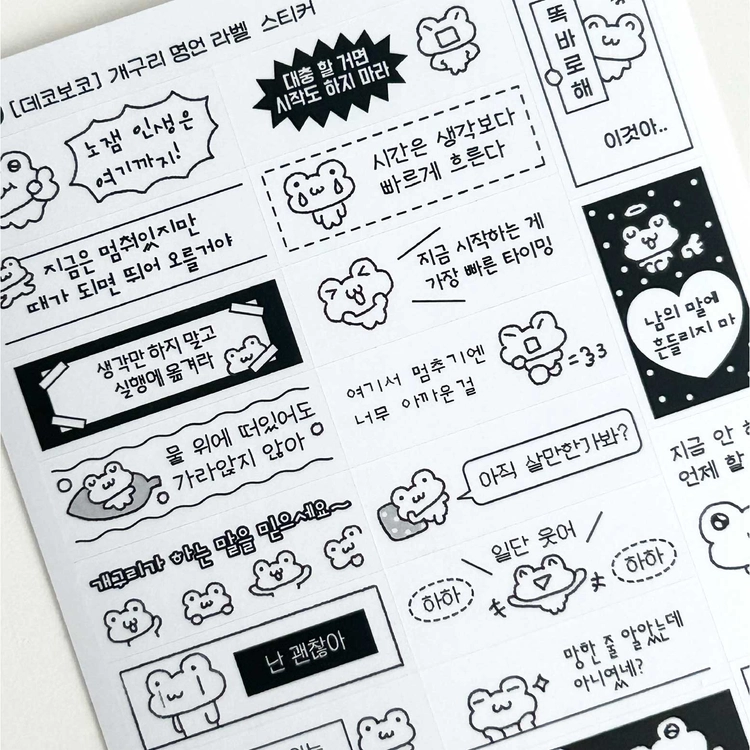 [데코보코] 개구리 명언 라벨 스티커
노잼 인생은
여기까지!
지금은 멈춰있지만
때가 되면 뛰어 오를거야
생각만 하지 말고
실행에 옮겨라
물 위에 떠있어도
가라앉지 않아
개구리가 하는 말을 믿으세요~
난 괜찮아
대충 할 거면
시작도 하지 마라
시간은 생각보다
빠르게 흐른다
지금 시작하는 게
가장 빠른 타이밍
여기서 멈추기엔
너무 아까운걸
아직 살만한가봐?
일단 웃어
하하
하하
망한 줄 알았는데
아니였네?
똑바로해
이것아..
남의 말에
흔들리지 마
지금 안
언제 할